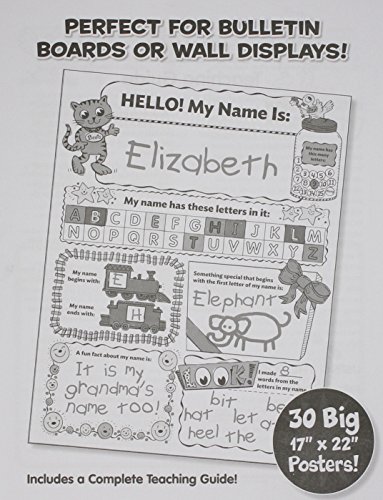 PERFECT FOR BULLETIN
BOARDS OR WALL DISPLAYS!
HELLO! My Name Is:
Beth
Elizabeth
My name has
this many
letters:
My name has these letters in it:
A B C D E F G H I J K L M
N O P Q R S T U V W X Y Z
My name
begins with:
E
My name
ends with:
H
Something special that begins
with the first letter of my name is:
Elephant
A fun fact about my name is:
It is my
grandma's
name too!
I made 8
words from the
letters in my name:
bit be
hat let a
heel the
30 Big
17" x 22"
Posters!
Includes a Complete Teaching Guide!